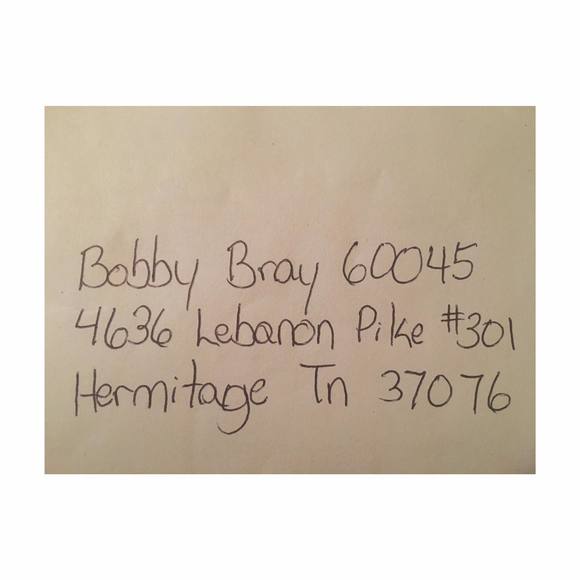 Bobby Bray 60045
4636 Lebanon Pike #301
Hermitage Tn 37076